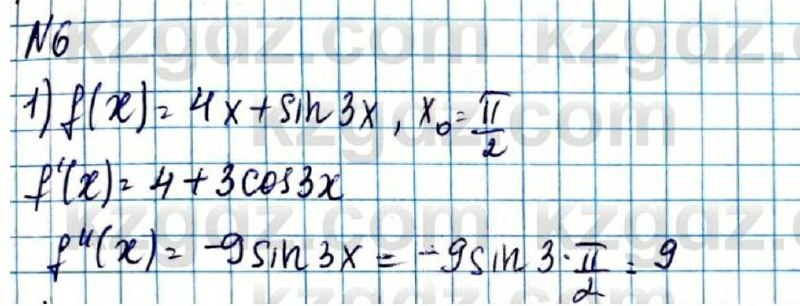 №6
1) f(x) = 4x + sin 3x, x₀ = π/2
f'(x) = 4 + 3cos3x
f''(x) = -9 sin 3x = -9 sin 3 · π/2 = 9
kzgdz.com kzgdz.com